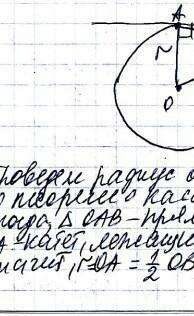 A
r
O
Проведем радиус
по теореме о каса
тогда, Δ OAB – прям
A – катет, лежащи
значит, r = OA = 1/2 OB